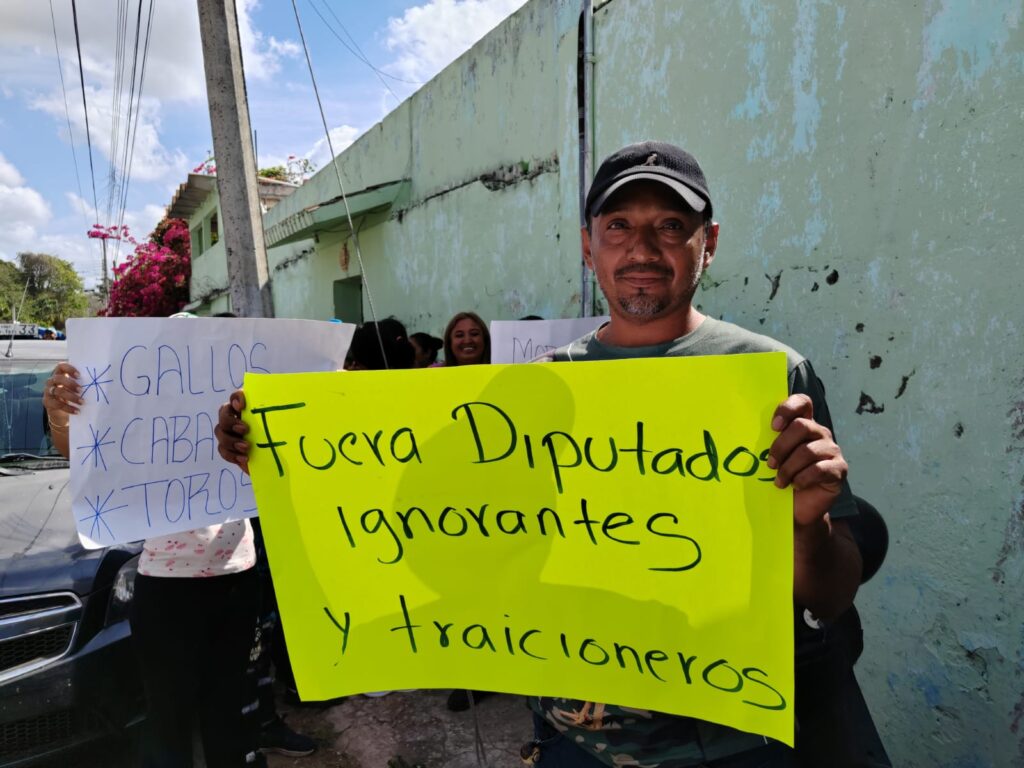 * GALLOS
* CABA
* TOROS
Fuera Diputados
ignorantes
y traicioneros